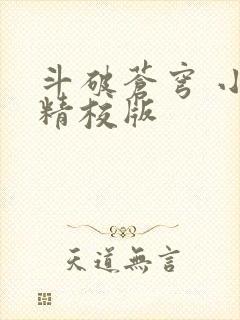 斗破蒼穹 小
精校版
天道無言